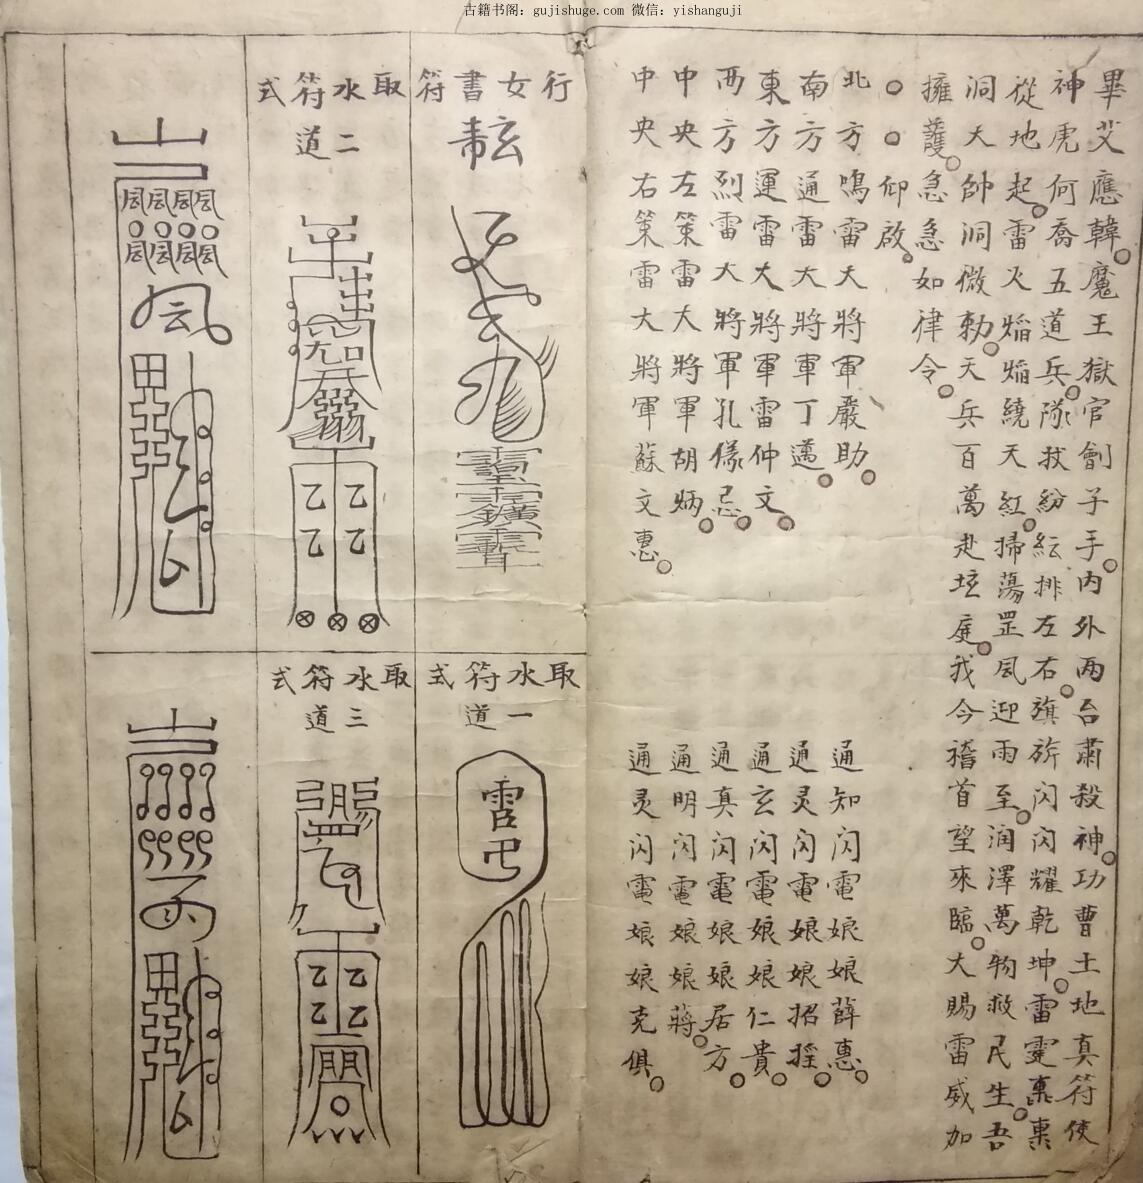 古籍书阁：gujishuge.com 微信：yishanguji
畢艾應韓魔王獄官劊子手内外两台肅殺神功曹土地真符使
神虎何喬五道兵隊扙紛紜排左右旗旂闪闪耀乾坤雷霆稟稟
從地起雷火焰焰繞天紅掃蕩罡風迎雨至润澤萬物救民生吾
洞大帥洞微勅天兵百萬赴坛庭我今稽首望來臨大賜雷威加
擁護急急如律令
仰啟
北方鳴雷大將軍嚴助
通知闪電娘娘薛惠
南方通雷大將軍丁邁
通灵闪電娘娘招
東方運雷大將軍雷仲文
通玄闪電娘娘仁貴
西方烈雷大將軍孔
通真闪電娘娘居方
中央左策雷大將軍胡炳
通明闪電娘娘蔣
中央右策雷大將軍蘇文惠
通灵闪電娘娘克俱
行女書符
取水符式
一道
取水符式
二道
取水符式
三道